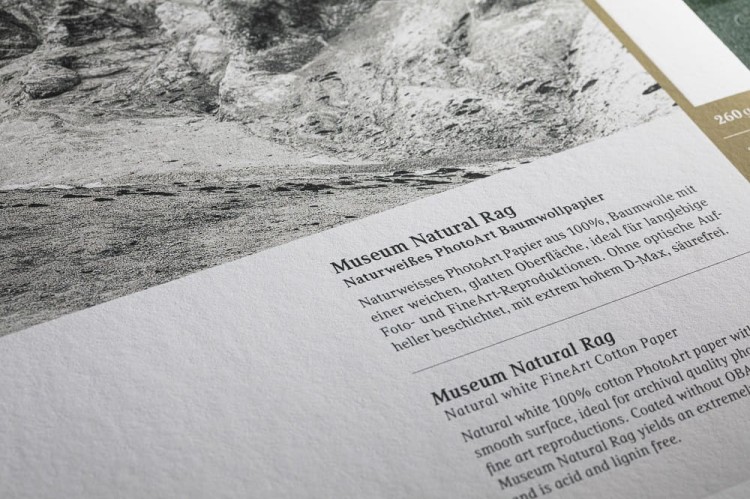 260
Museum Natural Rag
Naturweißes PhotoArt Baumwollpapier
Naturweisses PhotoArt Papier aus 100%, Baumwolle mit
einer weichen, glatten Oberfläche, ideal für langlebige
Foto- und FineArt-Reproduktionen. Ohne optische Auf-
heller beschichtet, mit extrem hohem D-Max, säurefrei.
Museum Natural Rag
Natural white FineArt Cotton Paper
Natural white 100% cotton PhotoArt paper with
smooth surface, ideal for archival quality pho
fine art reproductions. Coated without OBA
Museum Natural Rag yields an extremel
and is acid and lignin free.